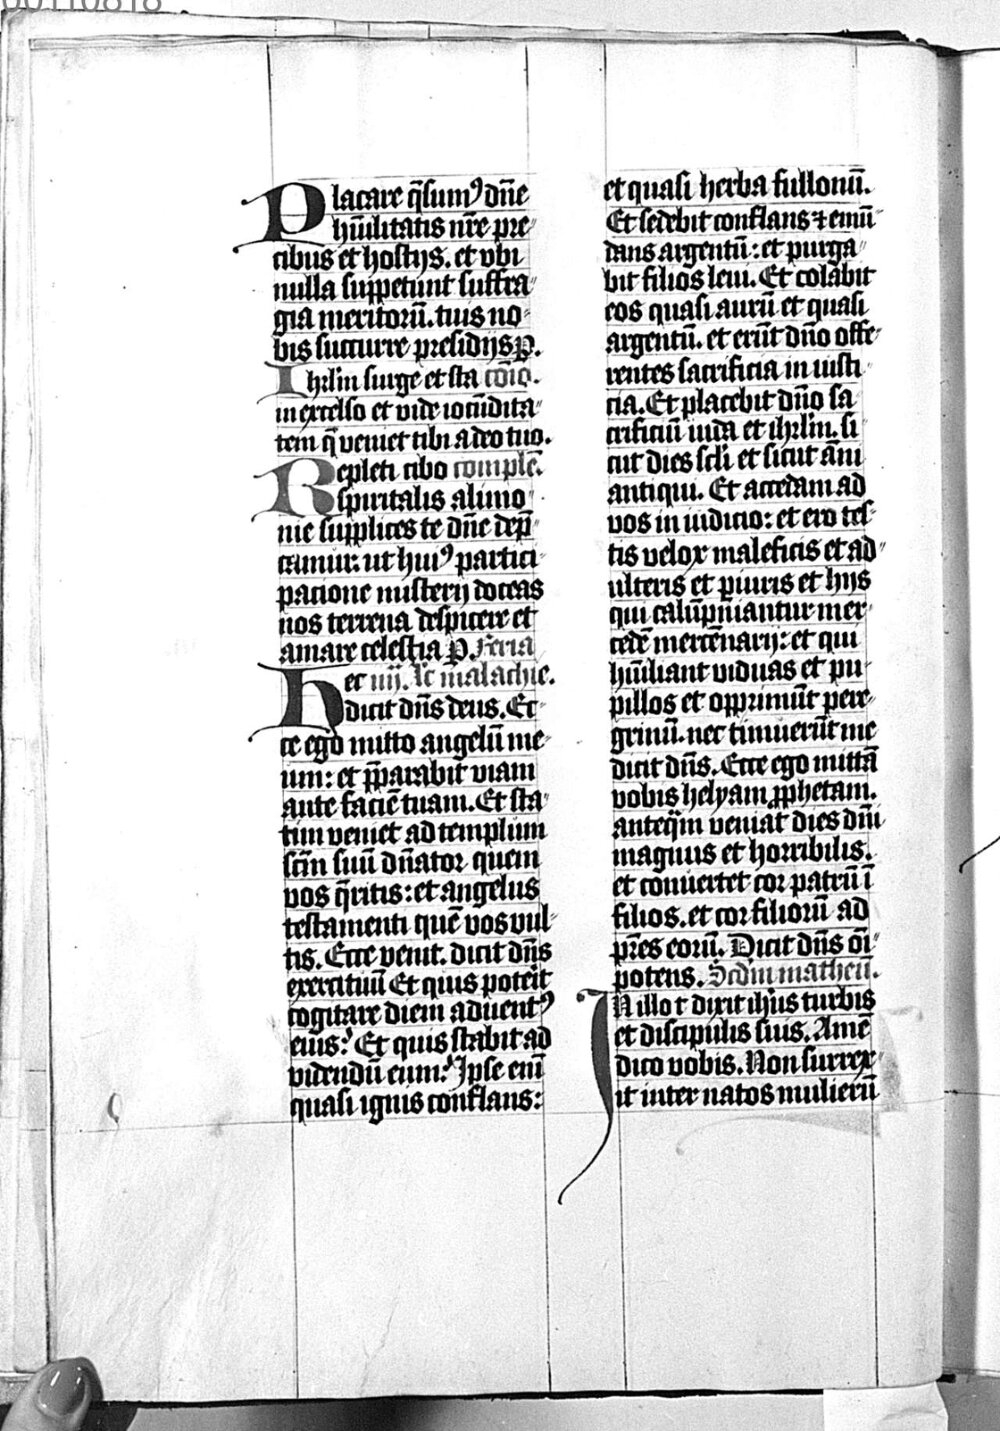 00110818
Placare q̄sumꝰ dn̄e
hūilitatis nr̄e pre
cibus et hostijs. et vbi
nulla suppetunt suffra
gia meritorū. tuis no
bis succurre presidijs p̲.
Ihrl̄m surge et sta cōio.
in excelso et vide iocūdita
tem q̄ veniet tibi a deo tuo.
Repleti cibo complē.
spiritalis alimo
nie supplices te dn̄e dep̄
camur: ut huiꝰ partici
pacione misterij doceas
nos terrena despicere et
amare celestia p̲. Feria
Hec iiij. lc̄ malachie.
dicit dn̄s deus. Ec
ce ego mitto angelū me
um: et p̄parabit viam
ante faciē tuam. Et sta
tim veniet ad templum
scm̄ suū dn̄ator quem
vos q̄ritis: et angelus
testamenti quē vos vul
tis. Ecce venit. dicit dn̄s
exercituū Et quis poterit
cogitare diem aduentꝰ
eius? Et quis stabit ad
videndū eum? Ipse eni̅
quasi ignis conflans:
et quasi herba fullonū.
Et sedebit conflans ⁊ emū
dans argentū: et purga
bit filios leui. Et colabit
eos quasi aurū et quasi
argentū. et erūt dn̄o offe
rentes sacrificia in iusti
cia. Et placebit dn̄o sa
crificiū iuda et ihrl̄m. si
cut dies scl̄i et sicut ān̄i
antiqui. Et accedam ad
vos in iudicio: et ero tes
tis velox maleficis et ad
ulteris et piuris et hijs
qui calūpniantur mer
cedē mercēnarij: et qui
hūiliant viduas et pu
pillos et opprimūt pere
grinū. nec timuerūt me
dicit dn̄s. Ecce ego mittā
vobis helyam ꝓphetam.
anteq̄m veniat dies dn̄i
magnus et horribilis.
et conuertet cor patrū ī
filios. et cor filiorū ad
pr̄es eorū. Dicit dn̄s oī
potens. Scdm matheū.
IN illo t dixit ih̄us turbis
et discipulis suis. Amē
dico vobis. Non surrex
it inter natos mulierū